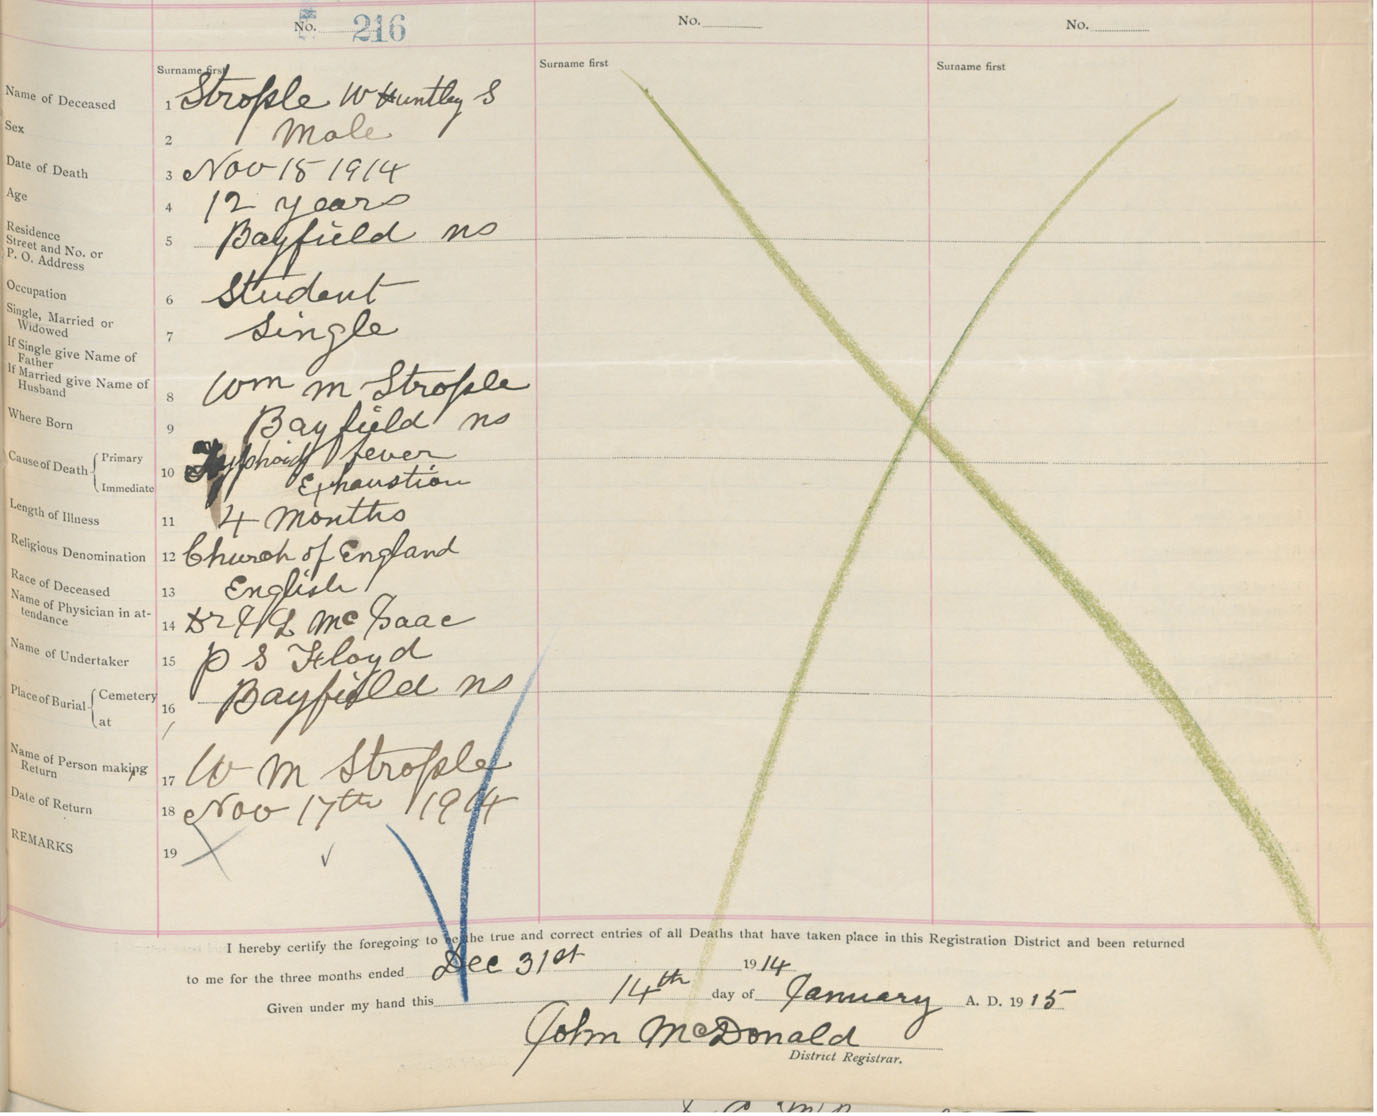 No. 216 No. No.
Surname first Surname first Surname first
Name of Deceased 1 Strople W Huntley S
Sex 2 Male
Date of Death 3 Nov 15 1914
Age 4 12 years
Residence
Street and No. or
P. O. Address 5 Bayfield ns
Occupation 6 Student
Single, Married or
Widowed 7 Single
If Single give Name of
Father
If Married give Name of
Husband 8 Wm M Strople
Where Born 9 Bayfield ns
Cause of Death Primary 10 Typhoid fever
Immediate Exhaustion
Length of Illness 11 4 Months
Religious Denomination 12 Church of England
Race of Deceased 13 English
Name of Physician in at-
tendance 14 Dr McIsaac
Name of Undertaker 15 P S Floyd
Place of Burial Cemetery 16 Bayfield ns
at
Name of Person making
Return 17 W M Strople
Date of Return 18 Nov 17th 1914
REMARKS 19
I hereby certify the foregoing to be the true and correct entries of all Deaths that have taken place in this Registration District and been returned
to me for the three months ended Dec 31st 1914
Given under my hand this 14th day of January A. D. 1915
John McDonald
District Registrar.